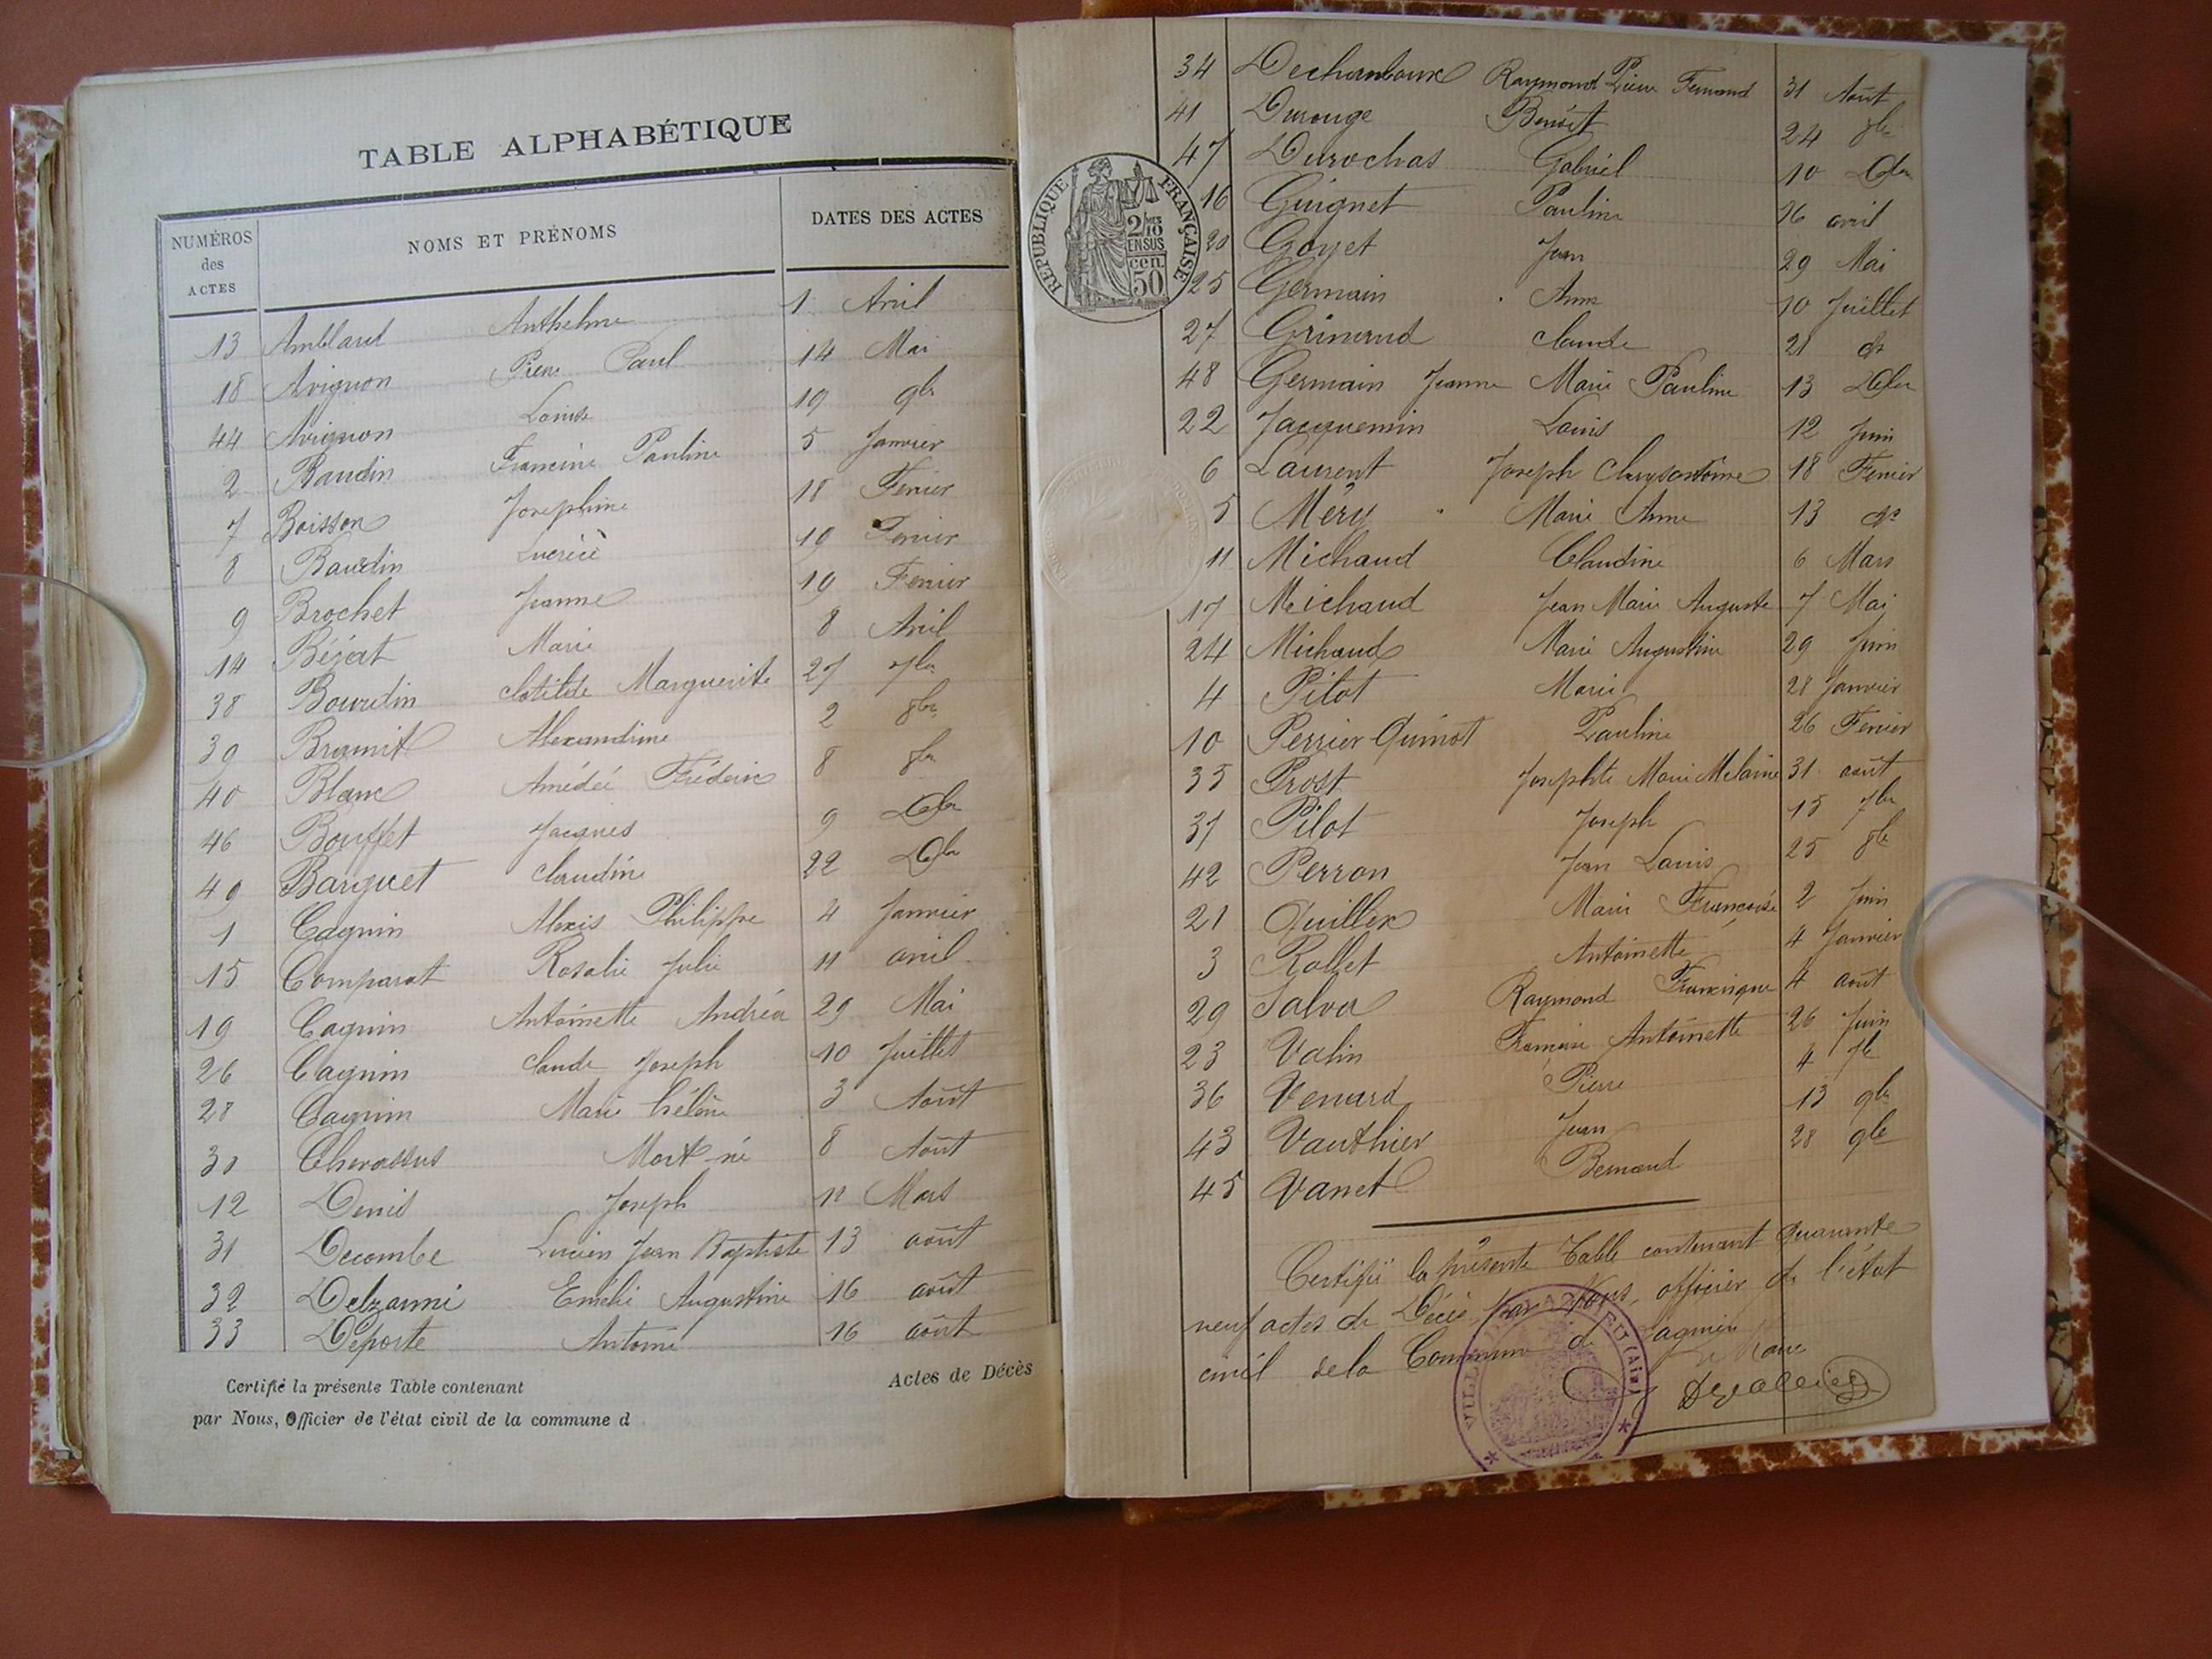 TABLE ALPHABÉTIQUE
NUMÉROS des ACTES NOMS ET PRÉNOMS DATES DES ACTES
13 Amblard Anthelme 1 Avril
18 Avignon Pierre Paul 14 Mai
44 Avignon Louise 19 9bre
2 Baudin Francine Pauline 5 Janvier
7 Boisson Josephine 18 Fevrier
8 Baudin Lucrèce 19 Fevrier
9 Brochet Jeanne 19 Fevrier
14 Béjat Marie 8 Avril
38 Bourdin Clotilde Marguerite 27 7bre
39 Alexandrine 2 8bre
40 Blanc Amédée Fréderic 8 8bre
46 Bouffet Jacques 9 Xbre
49 Barquet Claudine 22 Xbre
1 Cagnin Alexis Philippe 4 Janvier
15 Comparat Rosalie Julie 11 avril
19 Cagnin Antoinette Andréa 29 Mai
26 Cagnin Claude Joseph 10 Juillet
28 Cagnin Marie hélène 3 Août
30 Chavassus Mort-né 8 Août
12 Denis Joseph 12 Mars
31 Decombe Lucien Jean Baptiste 13 août
32 Delzanni Emélie Augustine 16 août
33 Déporte Antoine 16 août
Certifié la présente Table contenant Actes de Décès
par Nous, Officier de l'état civil de la commune d
34 Raymond Pierre Fernand 31 Août
41 Durouge Benoît 24 8bre
47 Durochas Gabriel 10 Xbre
16 Guignet Pauline 26 avril
20 Goyet Jean 29 Mai
25 Germain Anne 10 Juillet
27 Grimand Claude 21 do
48 Germain Jeanne Marie Pauline 13 Xbre
22 Jacquemin Louis 12 Juin
6 Laurent Joseph Chrysostôme 18 Fevrier
5 Méry Marie Anne 13 do
11 Michaud Claudine 6 Mars
17 Michaud Jean Marie Auguste 7 Mai
24 Michaud Marie Augustine 29 Juin
4 Pitot Marie 28 Janvier
10 Perrier-Guinot Pauline 26 Fevrier
35 Prost Josephte Marie Melanie 31 août
37 Pilot Joseph 15 7bre
42 Perron Jean Louis 25 8bre
21 Quiller Marie Françoise 2 Juin
3 Rollet Antoinette 4 Janvier
29 Salva Raymond Francisque 4 août
23 Valin Françoise Antoinette 26 Juin
36 Venard Pierre 4 7bre
43 Vauthier Jean 13 9bre
45 Vanet Bernard 28 9bre
Certifié la présente Table contenant Quarante
neuf actes de Décès, par Nous, officier de l'état
civil de la Commune de Lagnieu
Le Maire
REPUBLIQUE FRANÇAISE
2/10 EN SUS
50 cen
VILLE DE LAGNIEU (Ain)